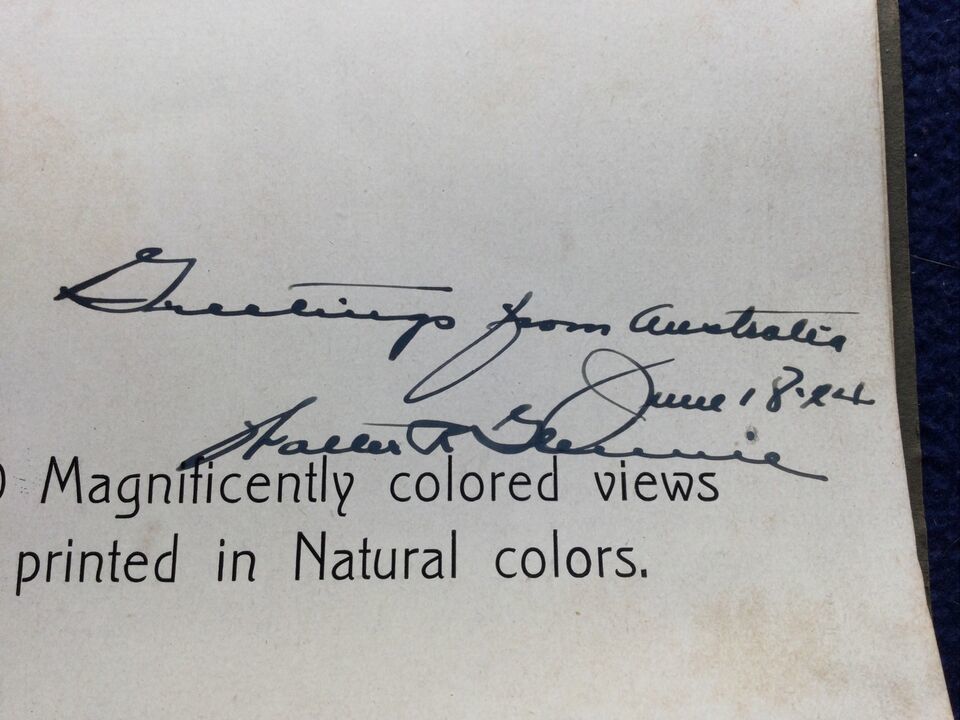 Greetings from Australia
June 18.24
Walter R Glennie
Magnificently colored views
printed in Natural colors.